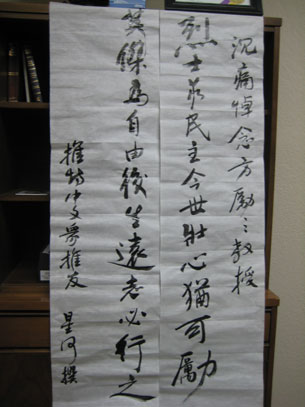 沉痛悼念方励之教授
烈士求民主今世壯心猶可勵
英傑爲自由後生遠志必行之
推特中文界推友 星河 撰